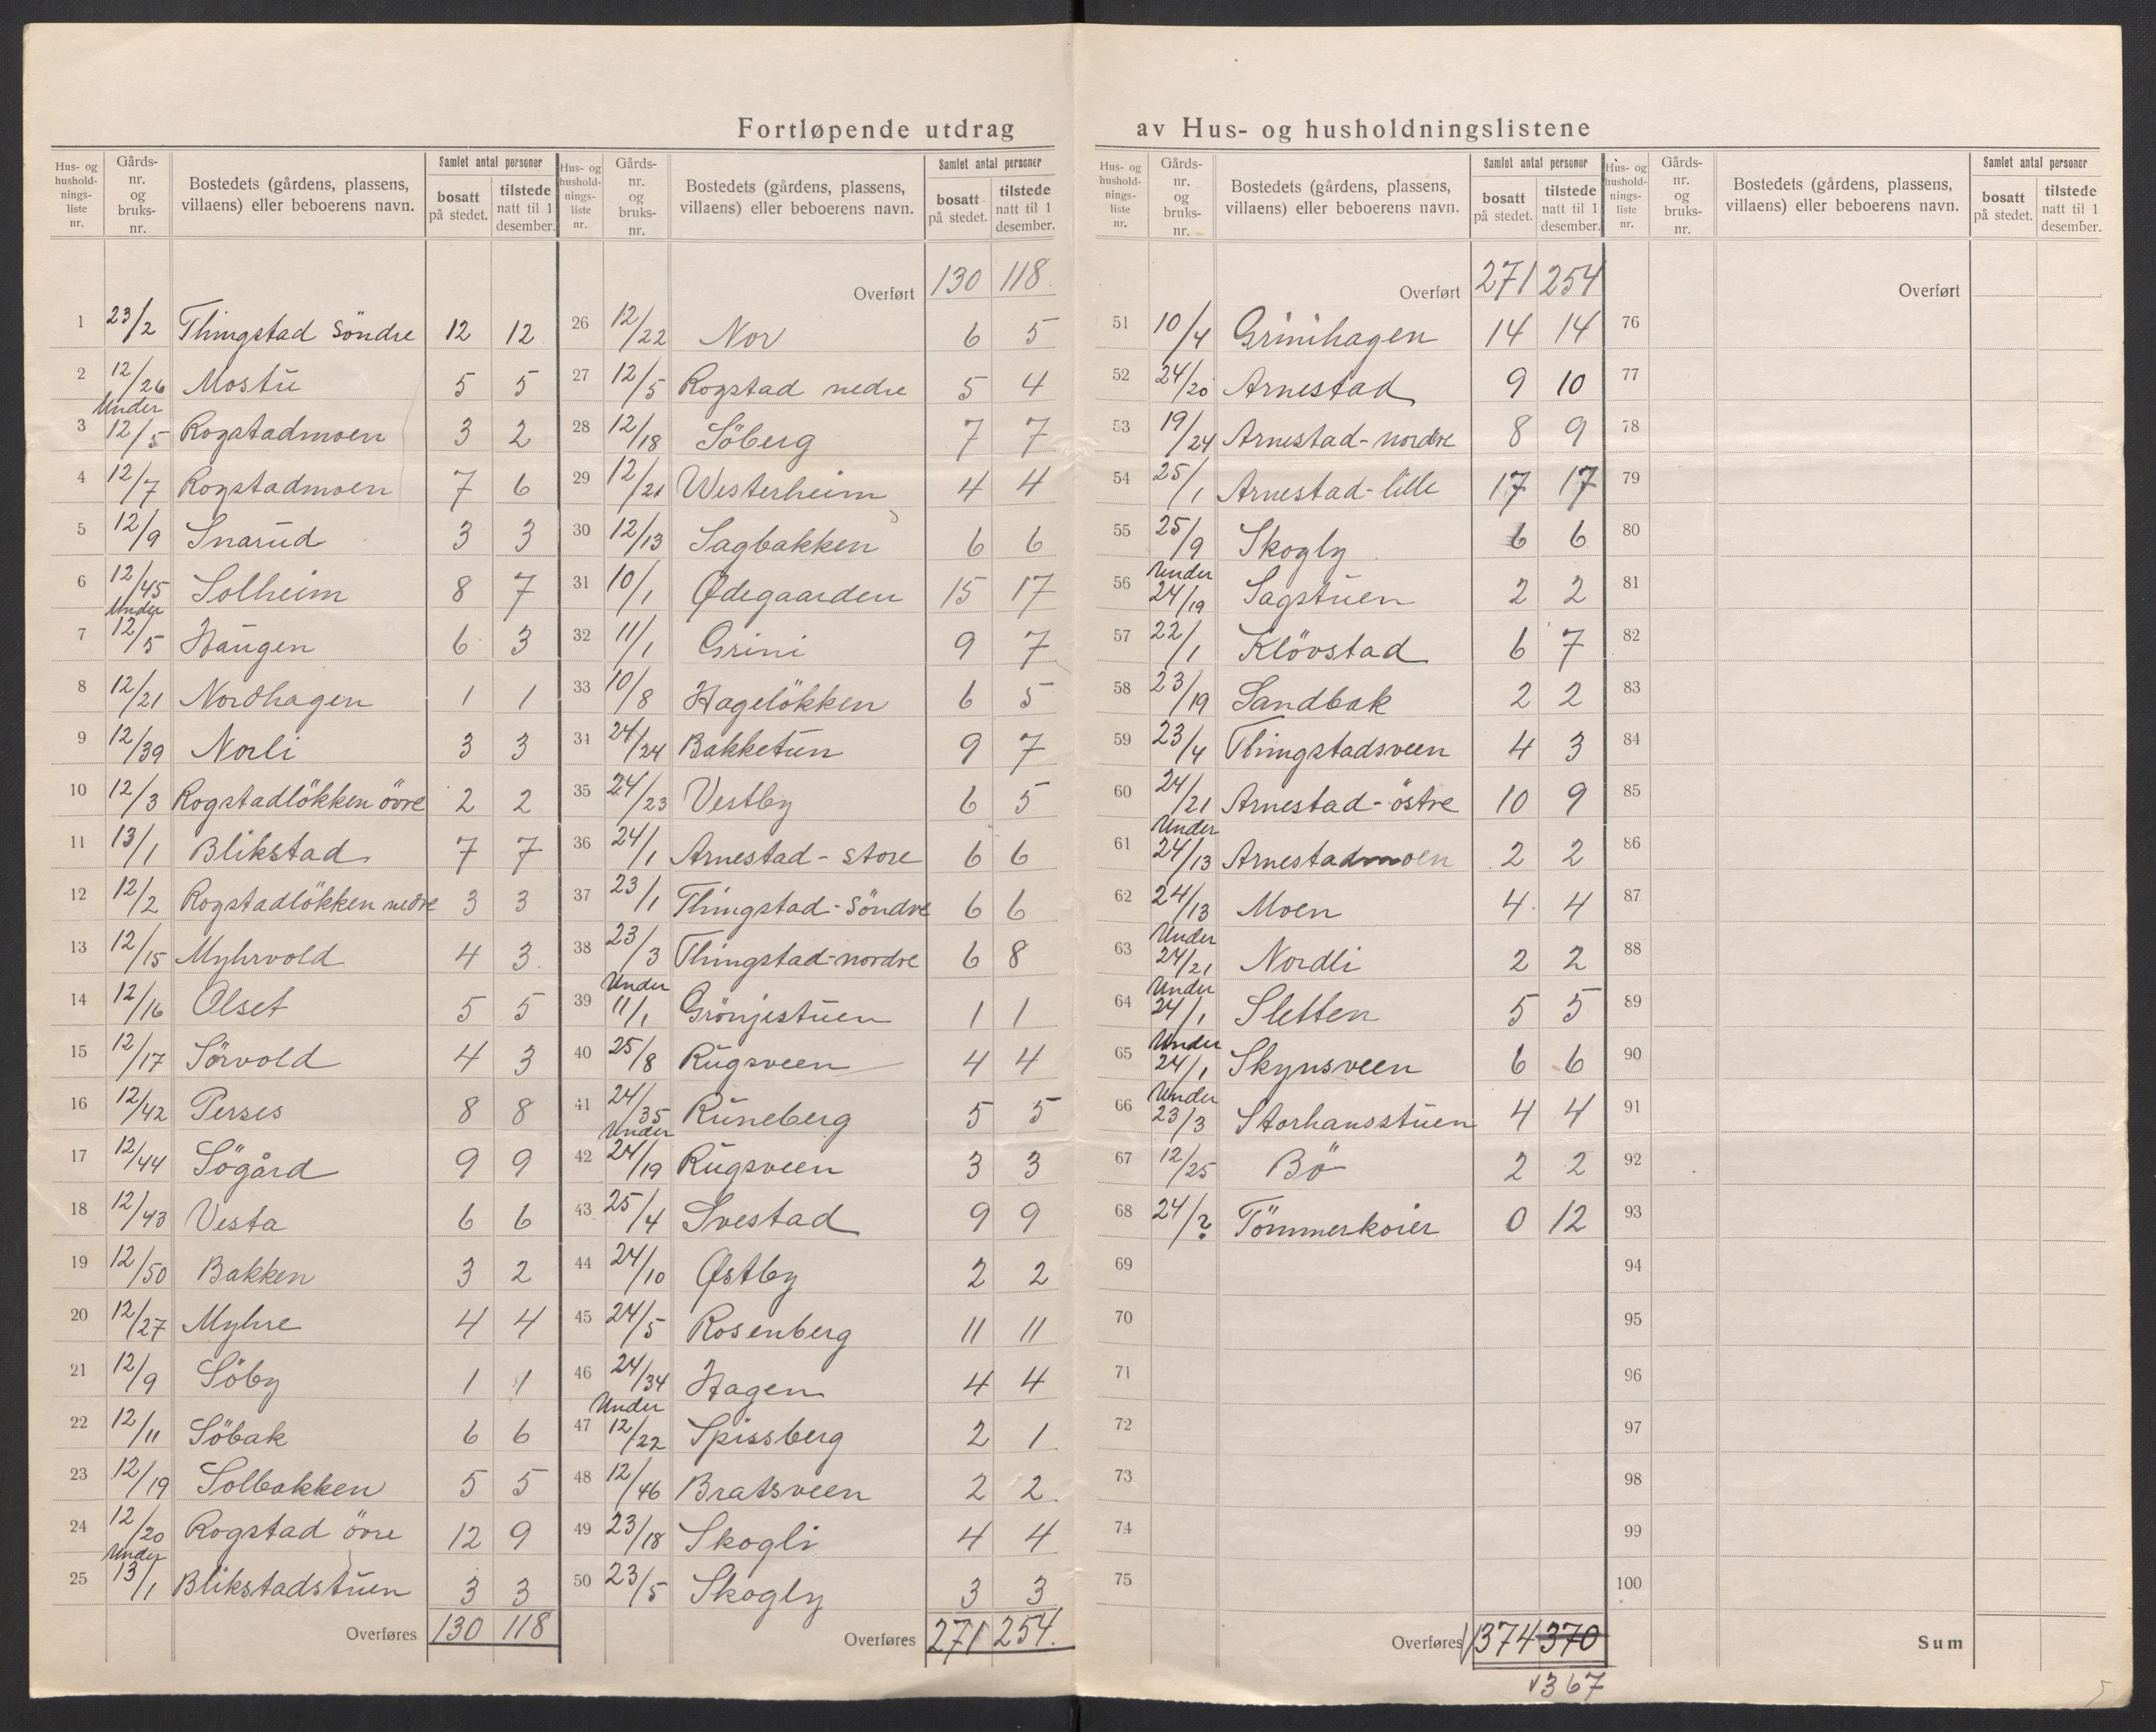 Fortløpende utdrag av Hus- og husholdningslistene
Hus- og husholdningsliste nr. | Gårdsnr. og bruksnr. | Bostedets (gårdens, plassens, villaens) eller beboerens navn. | Samlet antal personer: bosatt på stedet. | tilstede natt til 1 desember.
1 23/2 Thingstad Söndre 12 12
2 12/26 Mostu 5 5
3 Under 12/5 Rogstadmoen 3 2
4 12/7 Rogstadmoen 7 6
5 12/9 Snarud 3 3
6 12/45 Solheim 8 7
7 Under 12/5 Haugen 6 3
8 12/21 Nordhagen 1 1
9 12/39 Norli 3 3
10 12/3 Rogstadlökken övre 2 2
11 13/1 Blikstad 7 7
12 12/2 Rogstadlökken nedre 3 3
13 12/15 Myhrvold 4 3
14 12/16 Olset 5 5
15 12/17 Sörvold 4 3
16 12/42 Perses 8 8
17 12/44 Sögård 9 9
18 12/43 Vesta 6 6
19 12/50 Bakken 3 2
20 12/27 Myhre 4 4
21 12/9 Söby 1 1
22 12/11 Söbak 6 6
23 12/19 Solbakken 5 5
24 12/20 Rogstad övre 12 9
25 Under 13/1 Blikstadstuen 3 3
Overføres 130 118
Hus- og husholdningsliste nr. | Gårdsnr. og bruksnr. | Bostedets (gårdens, plassens, villaens) eller beboerens navn. | Samlet antal personer: bosatt på stedet. | tilstede natt til 1 desember.
Overført 130 118
26 12/22 Nor 6 5
27 12/5 Rogstad nedre 5 4
28 12/18 Söberg 7 7
29 12/21 Westerheim 4 4
30 12/13 Sagbakken 6 6
31 10/1 Ødegaarden 15 17
32 11/1 Grini 9 7
33 10/8 Hagelökken 6 5
34 24/24 Bakketun 9 7
35 24/23 Vestby 6 5
36 24/1 Arnestad - store 6 6
37 23/1 Thingstad - Söndre 6 6
38 23/3 Thingstad - nordre 6 8
39 Under 11/1 Grönjestuen 1 1
40 25/8 Rugsveen 4 4
41 24/35 Runeberg 5 5
42 Under 24/19 Rugsveen 3 3
43 25/4 Svestad 9 9
44 24/10 Østby 2 2
45 24/5 Rosenberg 11 11
46 24/34 Hagen 4 4
47 Under 12/22 Spissberg 2 1
48 12/46 Bratsveen 2 2
49 23/18 Skogli 4 4
50 23/5 Skogly 3 3
Overføres 271 254.
Hus- og husholdningsliste nr. | Gårdsnr. og bruksnr. | Bostedets (gårdens, plassens, villaens) eller beboerens navn. | Samlet antal personer: bosatt på stedet. | tilstede natt til 1 desember.
Overført 271 254
51 10/4 Grinihagen 14 14
52 24/20 Arnestad 9 10
53 19/24 Arnestad - nordre 8 9
54 25/1 Arnestad - lille 17 17
55 25/9 Skogly 6 6
56 Under 24/19 Sagstuen 2 2
57 22/1 Klövstad 6 7
58 23/19 Sandbak 2 2
59 23/4 Thingstadsveen 4 3
60 24/21 Arnestad - östre 10 9
61 Under 24/13 Arnestadmoen 2 2
62 24/13 Moen 4 4
63 Under 24/21 Nordli 2 2
64 Under 24/1 Sletten 5 5
65 Under 24/1 Skynsveen 6 6
66 Under 23/3 Storhansstuen 4 4
67 12/25 Bö 2 2
68 24/? Tömmerkoier 0 12
69
70
71
72
73
74
75
Overføres 374 370
367
Hus- og husholdningsliste nr. | Gårdsnr. og bruksnr. | Bostedets (gårdens, plassens, villaens) eller beboerens navn. | Samlet antal personer: bosatt på stedet. | tilstede natt til 1 desember.
Overført
76
77
78
79
80
81
82
83
84
85
86
87
88
89
90
91
92
93
94
95
96
97
98
99
100
Sum